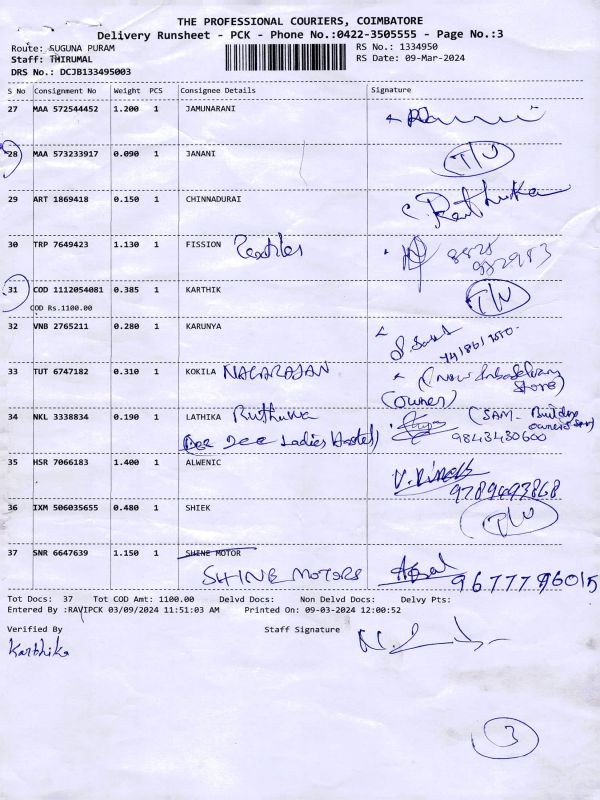 THE PROFESSIONAL COURIERS, COIMBATORE
Delivery Runsheet - PCK - Phone No.:0422-3505555 - Page No.:3
Route: SUGUNA PURAM
RS No.: 1334950
Staff: THIRUMAL
RS Date: 09-Mar-2024
DRS No.: DCJB133495003
S No Consignment No Weight PCS Consignee Details Signature
27 MAA 572544452 1.200 1 JAMUNARANI
28 MAA 573233917 0.090 1 JANANI T/U
29 ART 1869418 0.150 1 CHINNADURAI
30 TRP 7649423 1.130 1 FISSION Textiles
31 COD 1112054081 0.385 1 KARTHIK T/U
COD Rs.1100.00
32 VNB 2765211 0.280 1 KARUNYA
33 TUT 6747182 0.310 1 KOKILA NAGARAJAN
(owner)
34 NKL 3338834 0.190 1 LATHIKA Ruthuwa (SAM - Building
(Dee Dee Ladies Hostel) 9843430600
35 HSR 7066183 1.400 1 ALWENIC
9789493868
36 IXM 506035655 0.480 1 SHIEK T/U
37 SNR 6647639 1.150 1 SHINE MOTOR
SHINE MOTORS 9677796015
Tot Docs: 37 Tot COD Amt: 1100.00 Delvd Docs: Non Delvd Docs: Delvy Pts:
Entered By :RAVIPCK 03/09/2024 11:51:03 AM Printed On: 09-03-2024 12:00:52
Verified By Staff Signature
Karthika
3